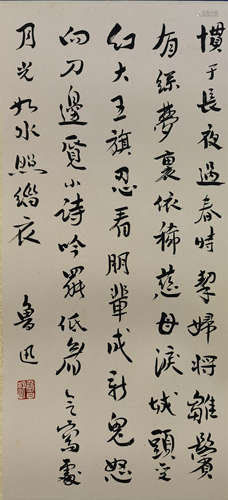 慣于長夜過春時挈婦將雛鬢
有絲夢裏依稀慈母淚城頭變
幻大王旗忍看朋輩成新鬼怒
向刀邊覓小詩吟罷低眉無寫處
月光如水照緇衣
魯迅